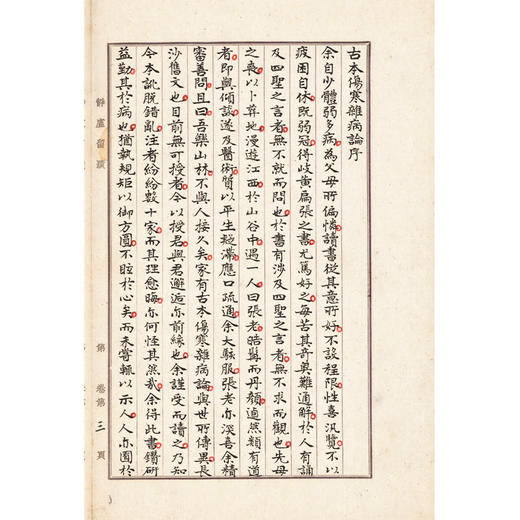 古本傷寒雜病論序
余自少體弱多病為父母所偏憐讀書從其意所好不設程限性喜汎覽不以
疲困自休既弱冠得岐黃扁張之書尤篤好之每苦其奇奧難通解於人有誦
及四聖之言者無不就而問也於書有涉及四聖之言者無不求而觀也先母
之喪以卜葬地漫遊江西於山谷中遇一人曰張老皓髯而丹顏逌然類有道
者即與傾談遂及醫術質以平生疑滯應口疏通余大駭服張老亦深喜余精
審善問且曰吾樂山林不與人接久矣家有古本傷寒雜病論與世所傳異長
沙舊文也目前無可授者今以授君與君邂逅亦前緣也余謹受而讀之乃知
今本訛脫錯亂注者紛紛數十家而其理愈晦亦何怪其然哉余得此書鑽研
益勤其於病也猶執規矩以御方圓不眩於心矣而未嘗輒以示人人亦囿於
第 卷第三頁